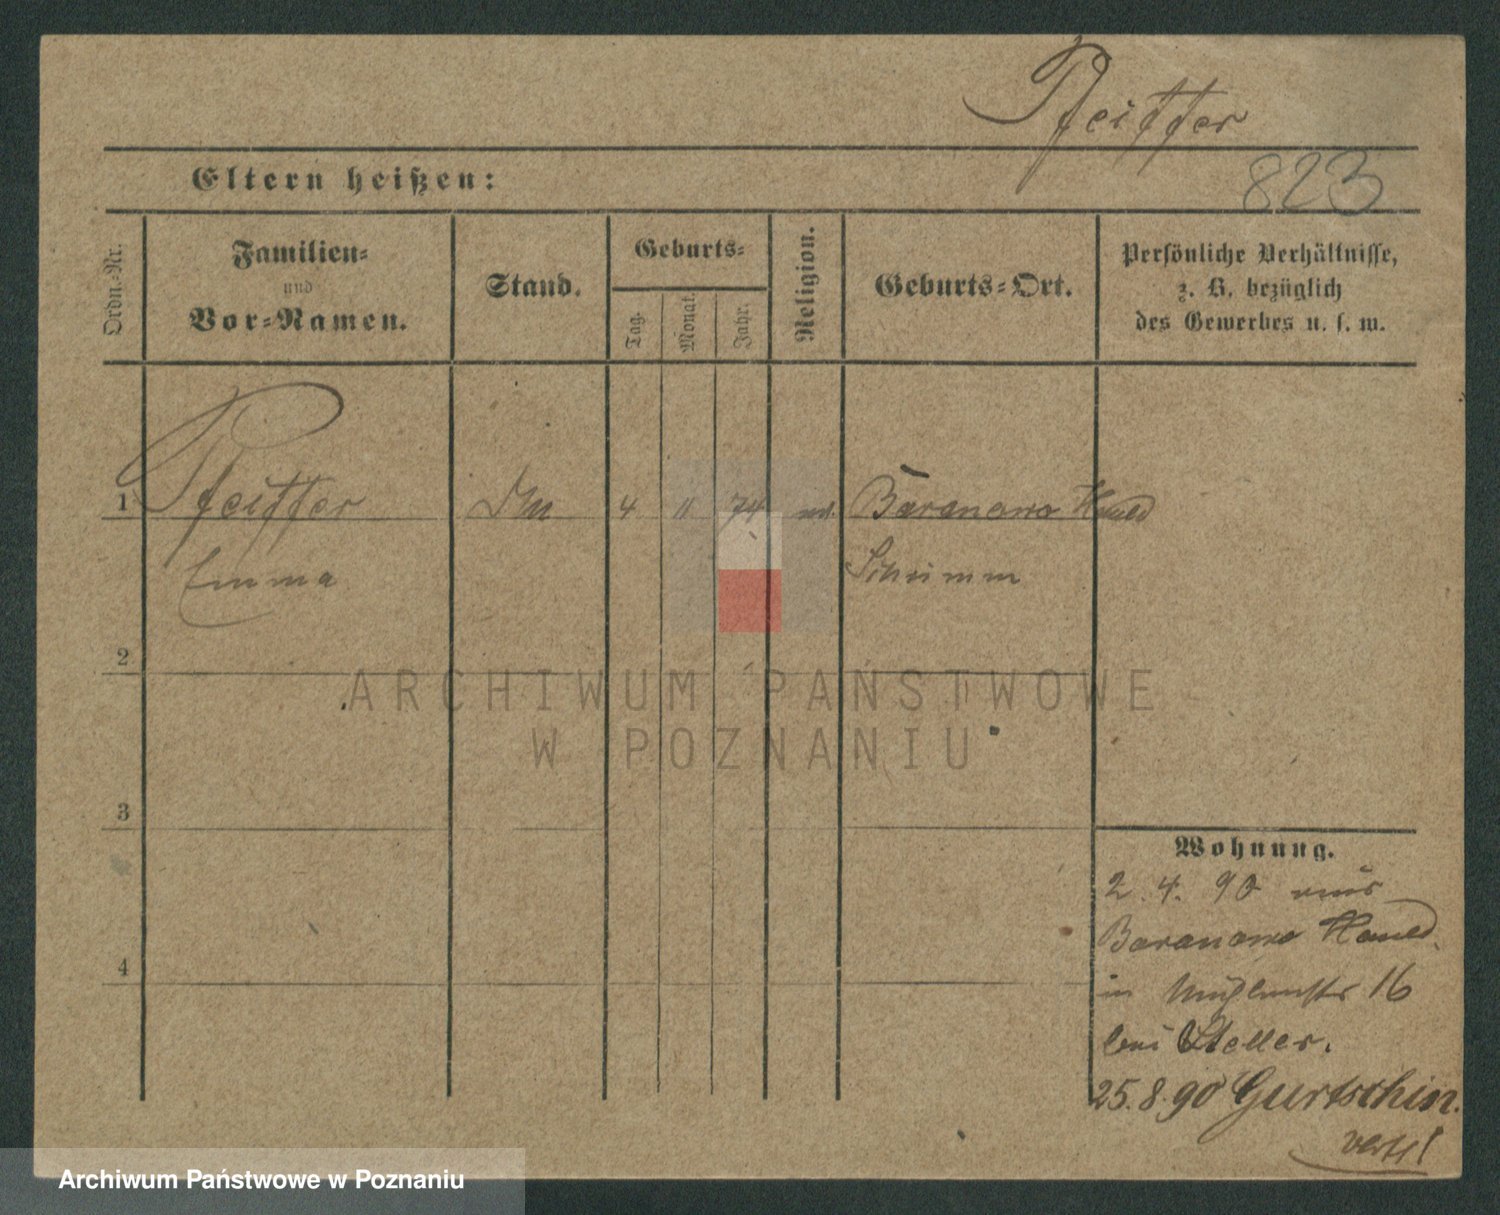 Pfeiffer
Eltern heißen:
823
Ordn.-Nr.
Familien-
und
Vor-Namen.
Stand.
Geburts-
Tag.
Monat.
Jahr.
Religion.
Geburts-Ort.
Persönliche Verhältnisse,
z. B. bezüglich
des Gewerbes u. s. w.
1
Pfeiffer
4 11 74
Baranowo Hauld
Emma
Schrimm
2
ARCHIWUM PAŃSTWOWE
W POZNANIU
3
Wohnung.
2. 4. 90 aus
Baranowo Hauld.
4
in Mühlenstr 16
bei Steller.
25.8.90 Gurtschin.
Archiwum Państwowe w Poznaniu